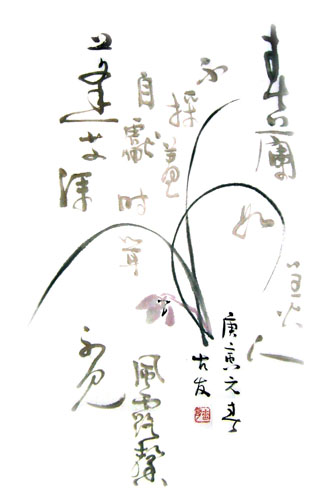 春蘭
如
美人
不採羞
自獻時聞
風露馨
蓬艾深
不見
庚寅元春
古友